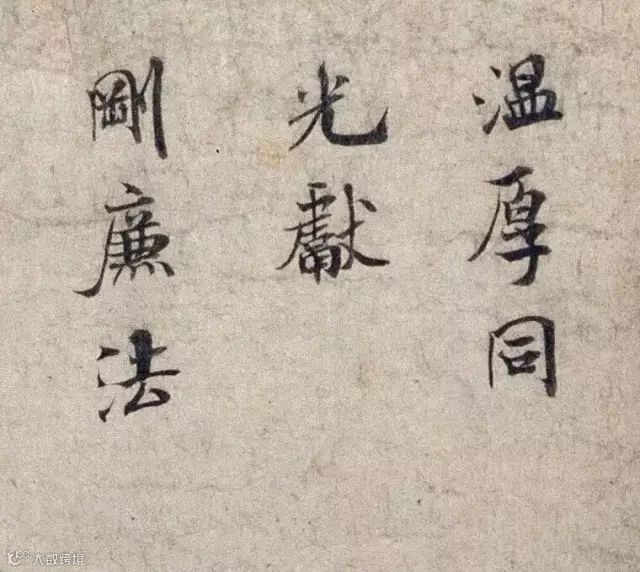 温厚同
光獻
剛廉法
大数跨境